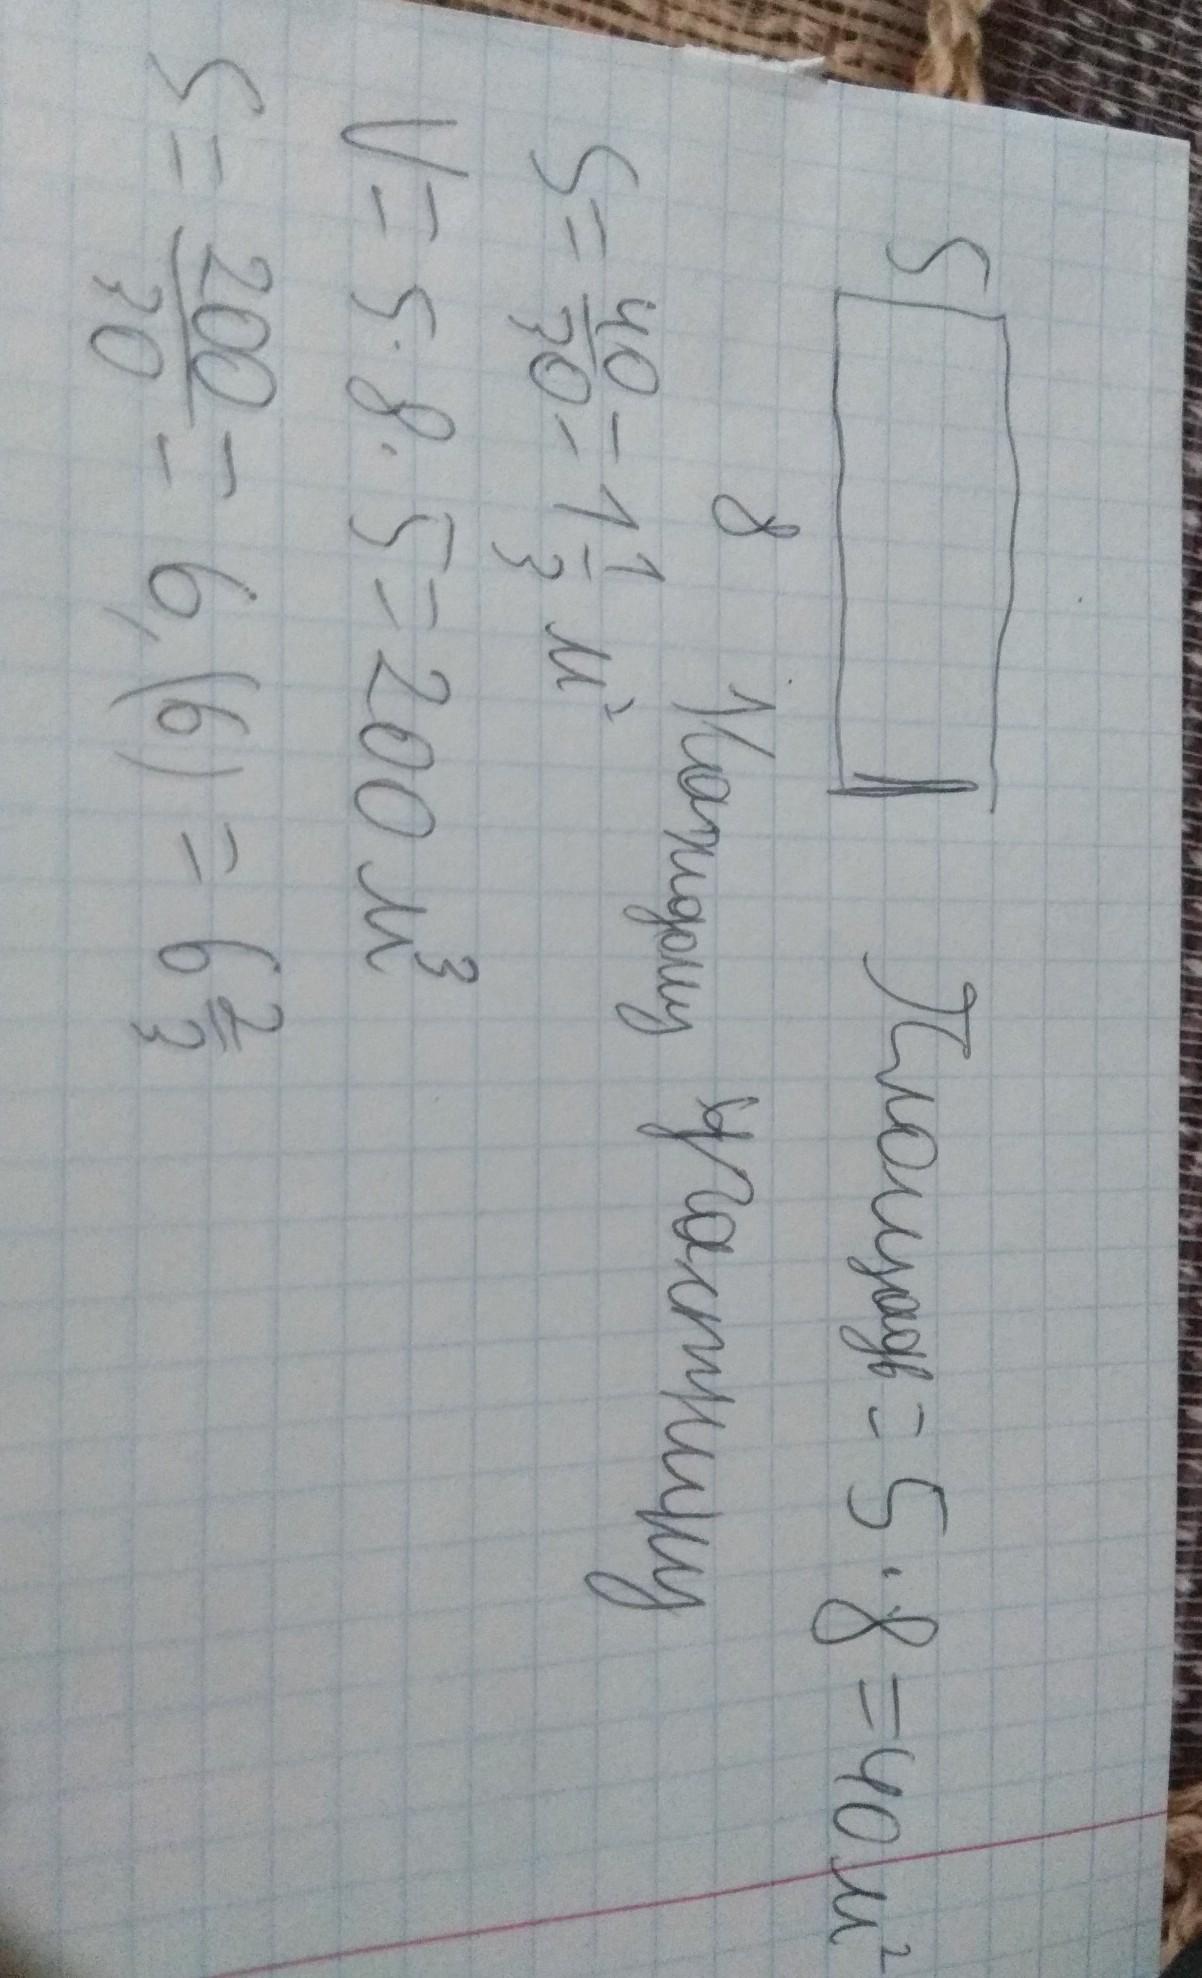 5
Площадь = 5 · 8 = 40 м²
8
Каждому участнику
S = 40/30 = 1 1/3 м²
V = 5 · 8 · 5 = 200 м³
S = 200/30 = 6,(6) = 6 2/3